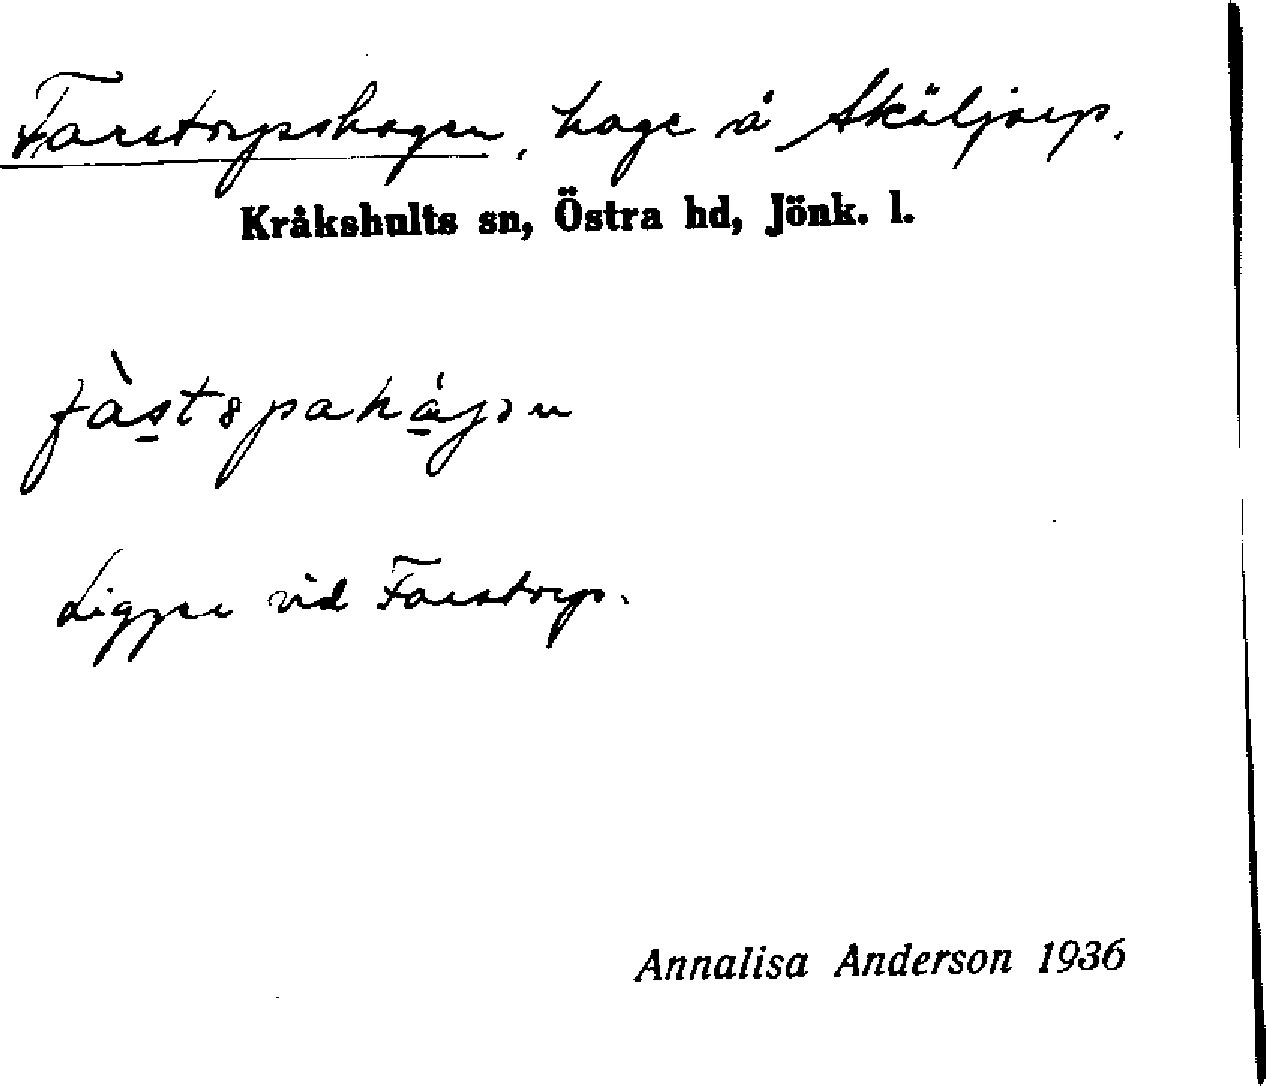 Farstorpshagen, hage å Sköljarp.
Kråkshults sn, Östra hd, Jönk. l.
fàstspahágən
Ligger vid Farstorp.
Annalisa Anderson 1936